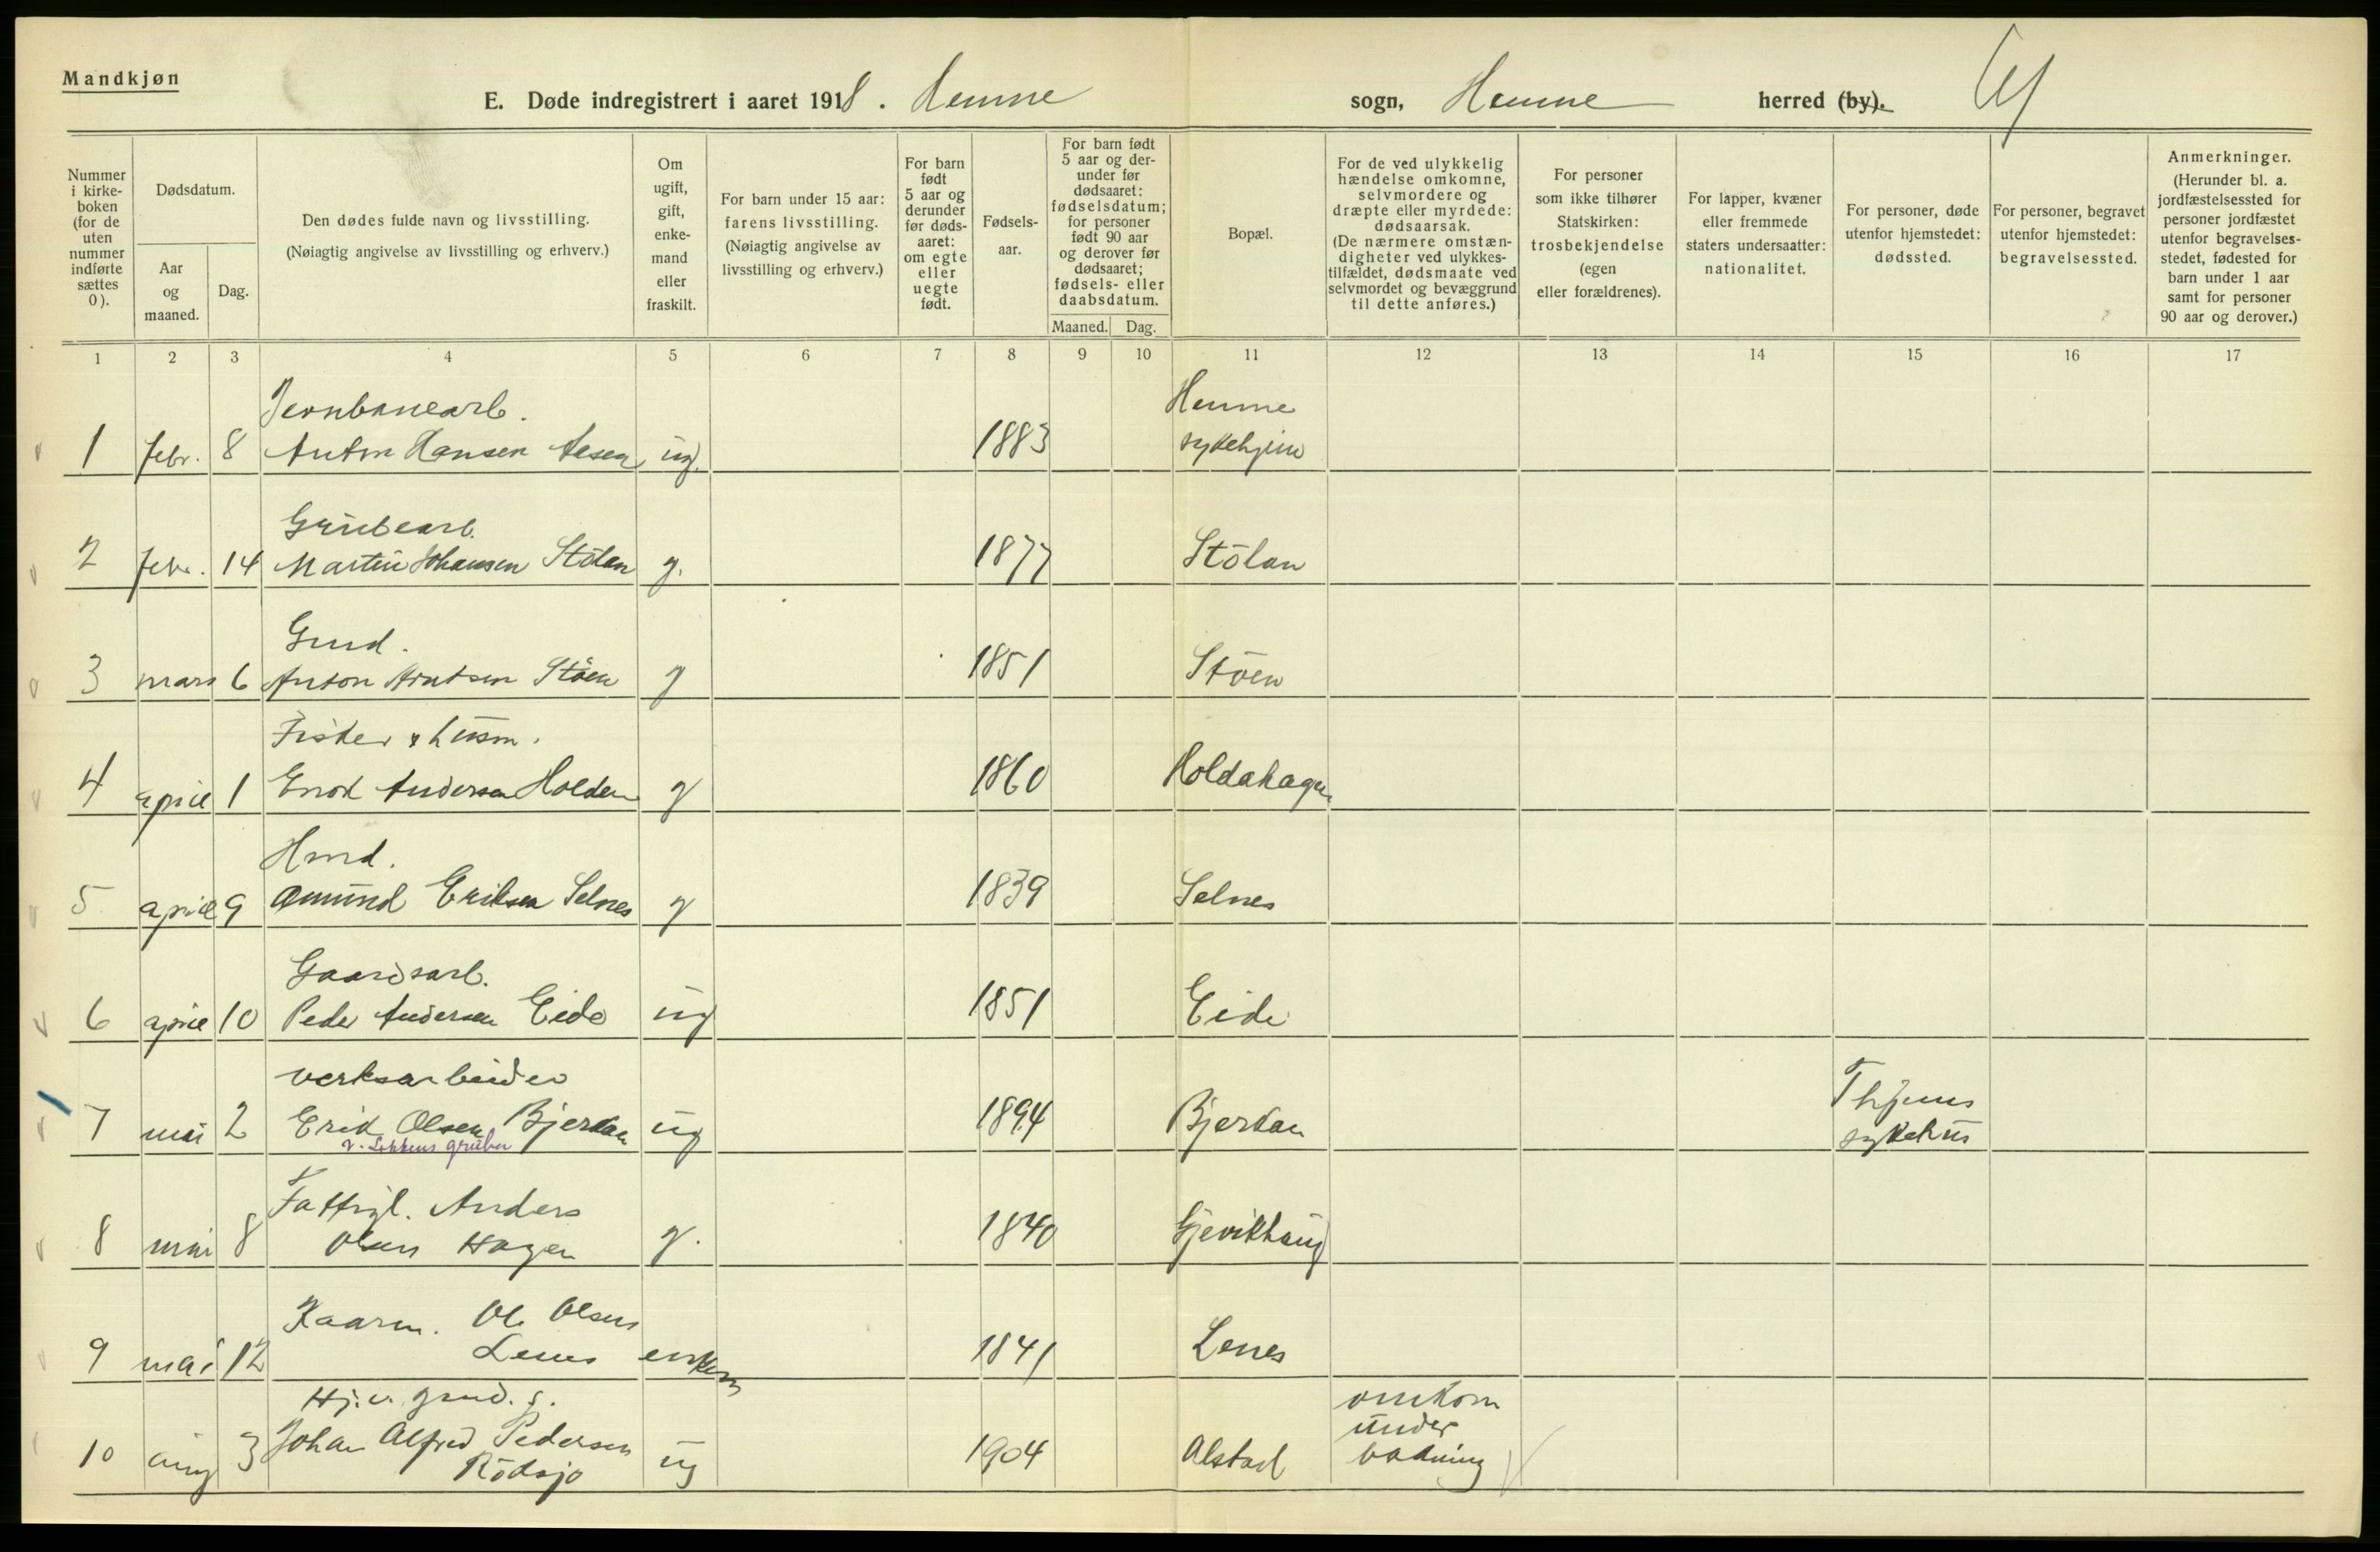 Mandkjøn
E. Døde indregistrert i aaret 1918. Hemne sogn, Hemne herred (by).
Nummer i kirkeboken (for de uten nummer indførte sættes 0).
Dødsdatum.
Aar og maaned.
Dag.
Den dødes fulde navn og livsstilling.
(Nøiagtig angivelse av livsstilling og erhverv.)
Om ugift, gift, enkemand eller fraskilt.
For barn under 15 aar: farens livsstilling.
(Nøiagtig angivelse av livsstilling og erhverv.)
For barn født 5 aar og derunder før dødsaaret: om egte eller uegte født.
Fødselsaar.
For barn født 5 aar og derunder før dødsaaret: fødselsdatum; for personer født 90 aar og derover før dødsaaret; fødsels- eller daabsdatum.
Maaned. Dag.
Bopæl.
For de ved ulykkelig hændelse omkomne, selvmordere og dræpte eller myrdede: dødsaarsak.
(De nærmere omstændigheter ved ulykkestilfældet, dødsmaate ved selvmordet og bevæggrund til dette anføres.)
For personer som ikke tilhører Statskirken: trosbekjendelse (egen eller forældrenes).
For lapper, kvæner eller fremmede staters undersaatter: nationalitet.
For personer, døde utenfor hjemstedet: dødssted.
For personer, begravet utenfor hjemstedet: begravelsessted.
Anmerkninger.
(Herunder bl. a. jordfæstelsessted for personer jordfæstet utenfor begravelsesstedet, fødested for barn under 1 aar samt for personer 90 aar og derover.)
1 2 3 4 5 6 7 8 9 10 11 12 13 14 15 16 17
Jernbanearb. Hemne
1 febr. 8 Anton Hansen Aasen ug. 1883 sykehjem
Grubearb.
2 febr. 14 Martin Johansen Stölan g. 1877 Stölan
Gmd.
3 mars 6 Anton Arntsen Stöen g 1851 Stöen
Fisker & husm.
4 april 1 Enok Andersen Holden g 1860 Holdahagen
Hmd.
5 april 9 Amund Eriksen Selnes g 1839 Selnes
Gaardsarb.
6 april 10 Peder Andersen Eide ug 1851 Eide
verksarbeider Thjems
7 mai 2 Erik Olsen Bjerkan ug 1894 Bjerkan sykehus
v. Løkkens gruber
Fattigl. Anders
8 mai 8 Olsen Hagen g. 1840 Gjevikhaug
Kaarm. Ole Olsen
9 mai 12 Lenes enkem 1841 Lenes
Hj. v. gmd. s. omkom
Johan Alfred Pedersen under
10 aug 3 Rödsjø ug 1904 Alstad badning